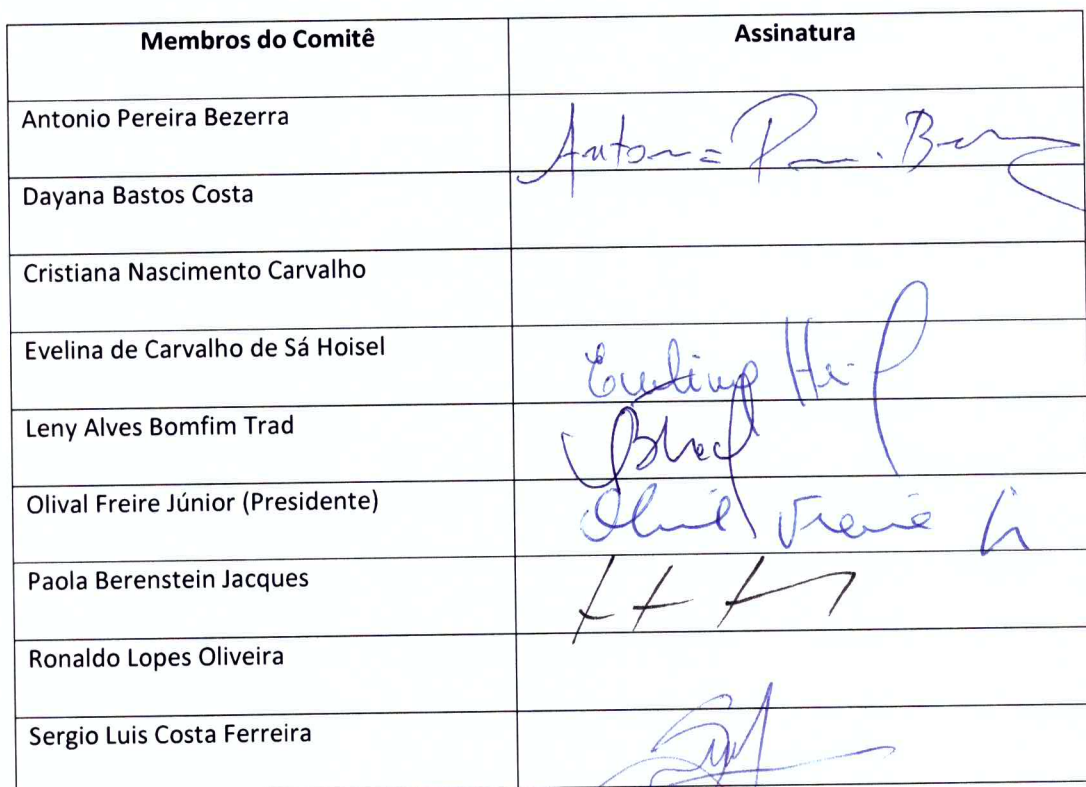 Membros do Comitê Assinatura
Antonio Pereira Bezerra
Dayana Bastos Costa
Cristiana Nascimento Carvalho
Evelina de Carvalho de Sá Hoisel
Leny Alves Bomfim Trad
Olival Freire Júnior (Presidente)
Paola Berenstein Jacques
Ronaldo Lopes Oliveira
Sergio Luis Costa Ferreira